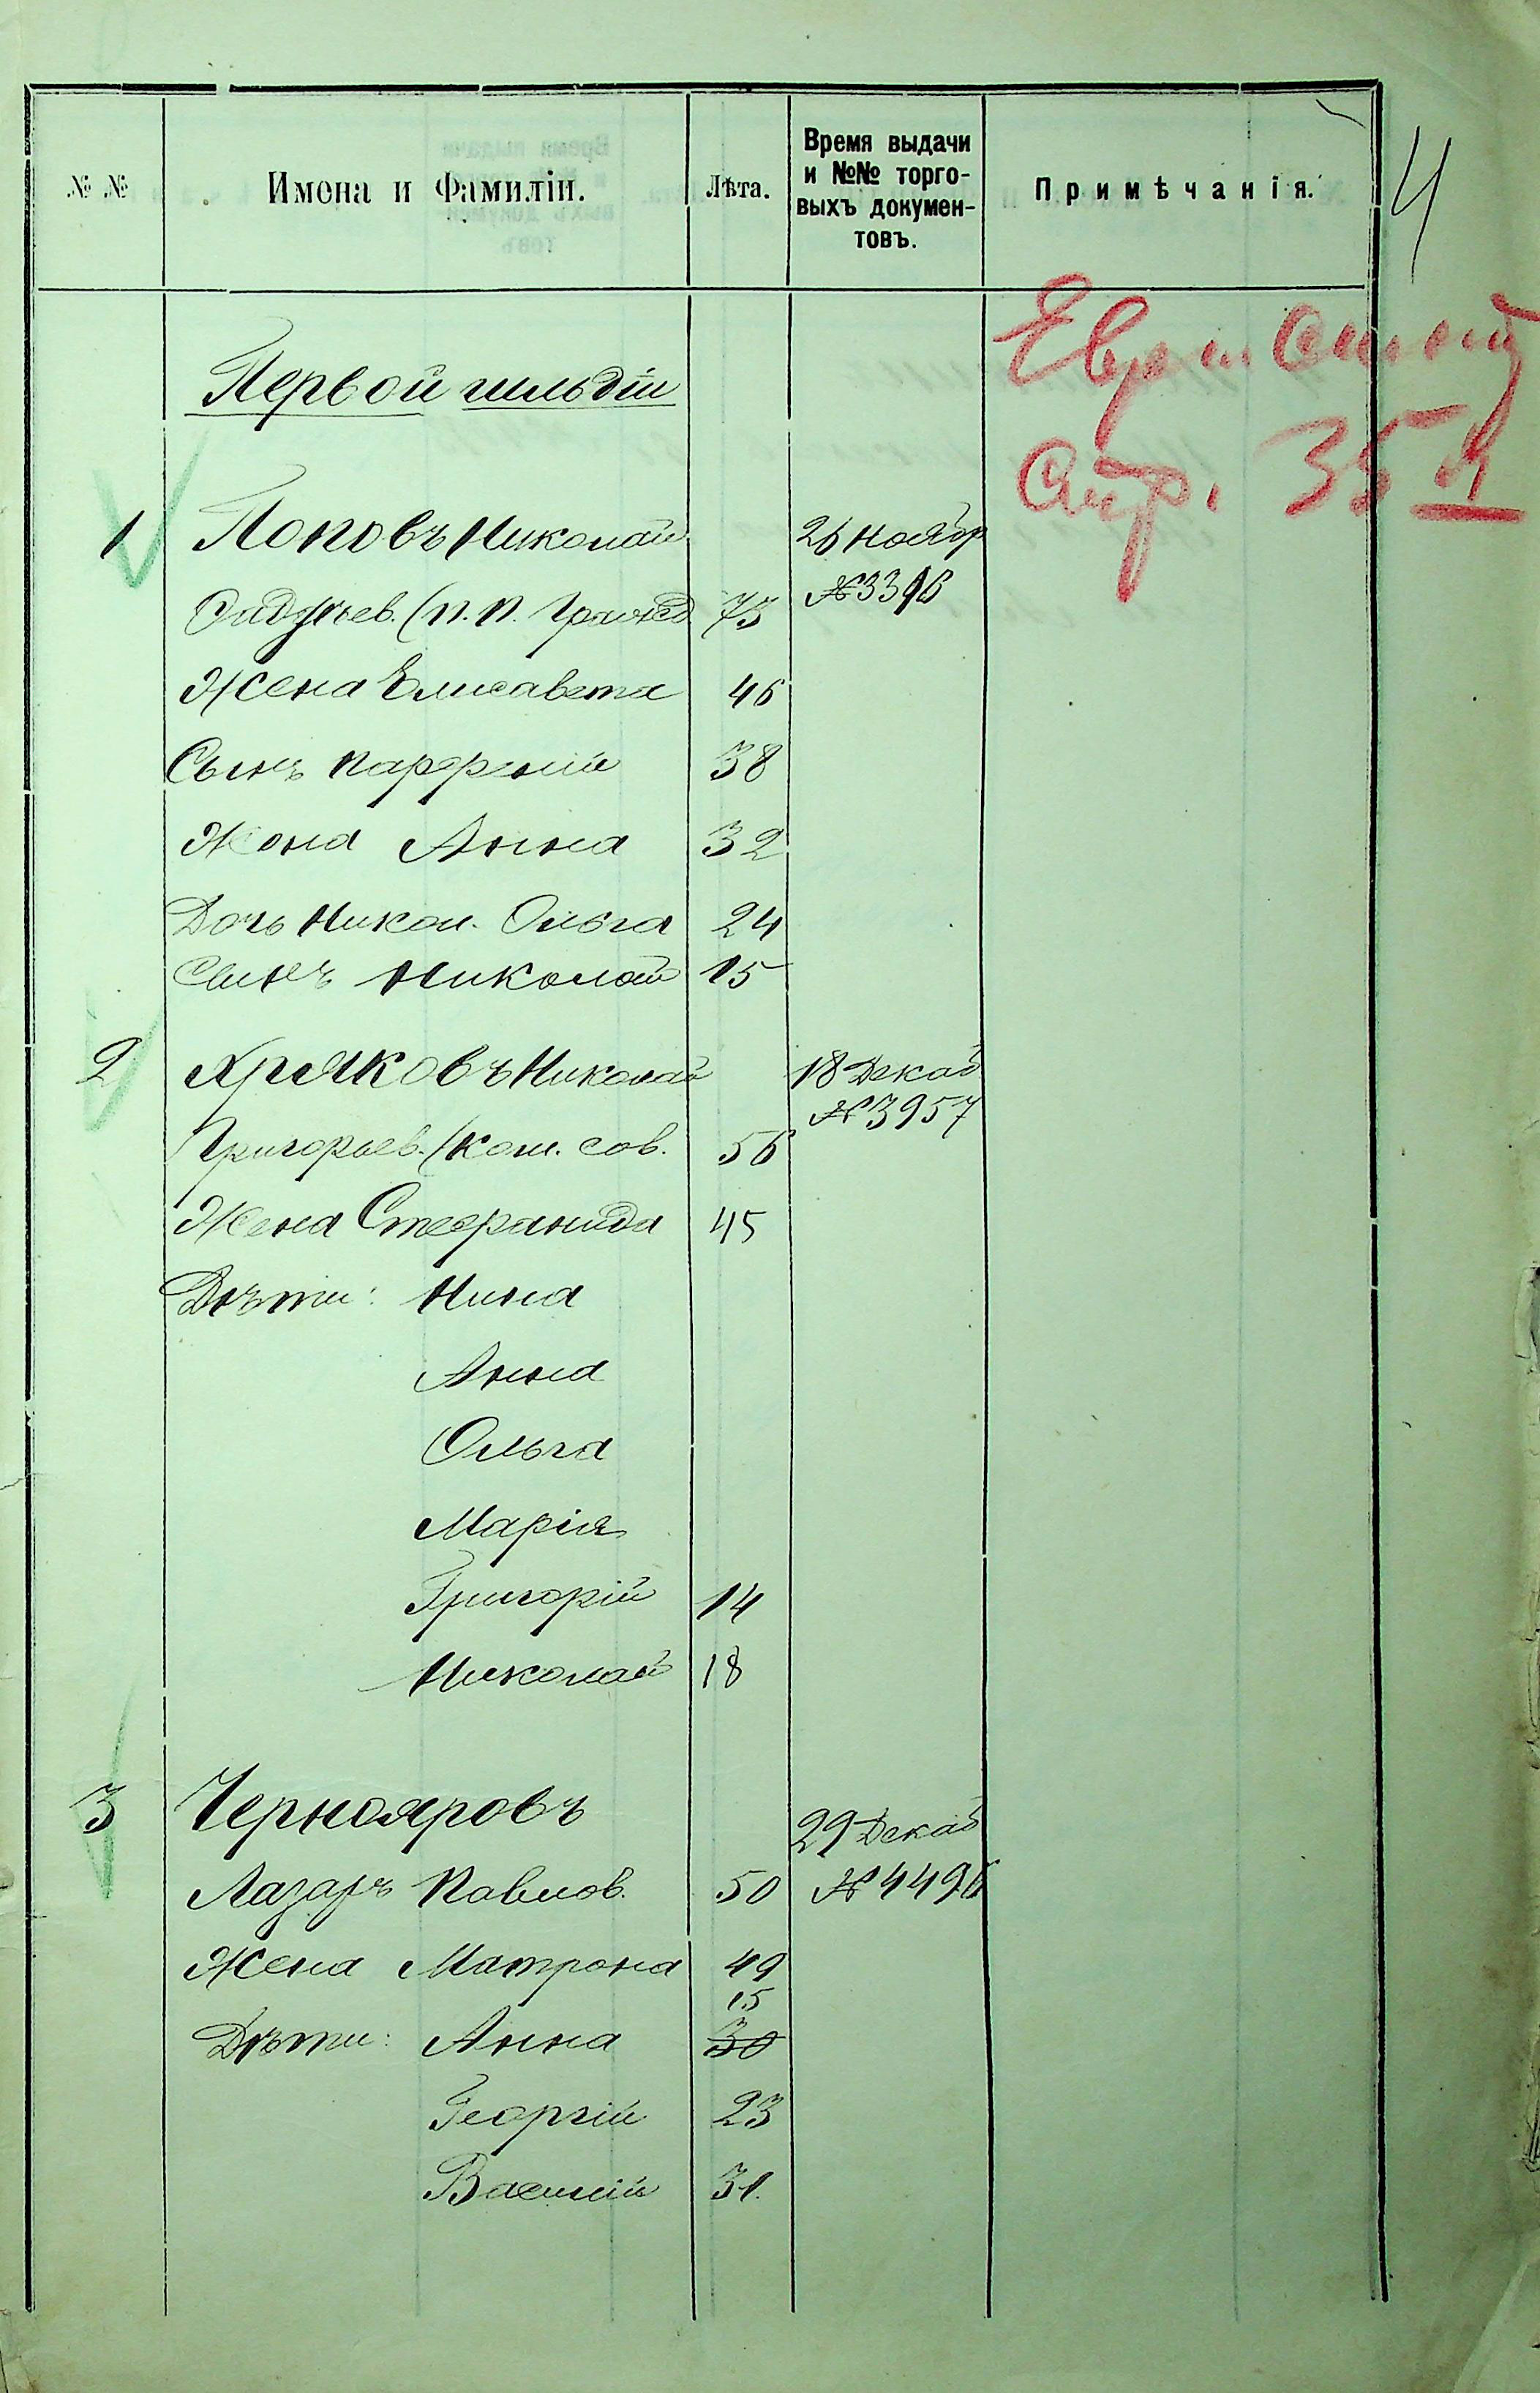 № № Имена и Фамиліи. Лѣта. Время выдачи и №№ торго- выхъ докумен- товъ. Примѣчанія.
4
Первой гильдіи
стр. 35
1 Поповъ Николай 26 Ноябр
(п. п. гражд 75 № 3316
Жена Елисавета 46
Сынъ Парфеній 38
Жена Анна 32
Дочь Никол. Ольга 24
Сынъ Николай 15
2 Хряковъ Николай 18 Декаб
№ 3957
Григорьев. (ком. сов. 56
Жена Стефанида 45
Дѣти: Нина
Анна
Ольга
Марія
Григорій 14
Николай 18
3 Чернояровъ 29 Декаб
Лазарь Павлов. 50 № 4496
Жена Матрона 49
15
Дѣти: Анна 30
Георгій 23
Василій 31.